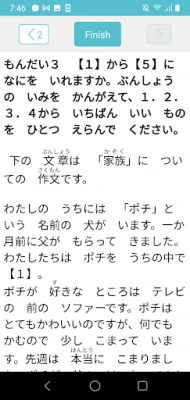 7:46
2
Finish
もんだい３　【１】から【５】に
なにを　いれますか。ぶんしょう
の　いみを　かんがえて、１．２．
３．４から　いちばん　いい　もの
を　ひとつ　えらんで　ください。
下の　文章は　「家族」に　つい
ての　作文です。
わたしの　うちには　「ポチ」と
いう　名前の　犬が　います。一か
月前に父が　もらって　きました。
わたしたちは　ポチを　うちの中で
【１】。
ポチが　好きな　ところは　テレビ
の　前の　ソファーです。ポチは
とてもかわいいのですが、何でも
かむので　少し　こまって　いま
す。先週は　本当に　こまりまし